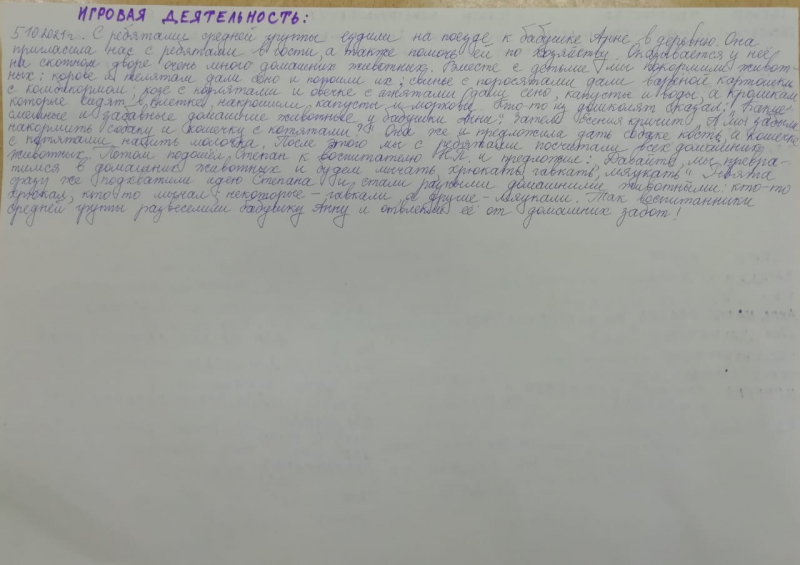 ИГРОВАЯ ДЕЯТЕЛЬНОСТЬ:
5.10.2021г. С ребятами средней группы ездили на поезде к бабушке Анне в деревню. Она
пригласила нас с ребятами в гости, а также помочь ей по хозяйству. Оказывается у неё
на скотном дворе очень много домашних животных. Вместе с детьми мы покормили живот-
ных: корове и телятам дали сено и поили их; свинье с поросятами дали варёной картошки
с комбикормом; козе с козлятами и овечке с ягнятами дали сено, капусты и воды, а кроликам
которые сидят в клетке, накрошили капусты и моркови. Кто-то из дошколят сказал: "Какие
смешные и забавные домашние животные у бабушки Анны". Затем Ксения кричит: "А мы забыли
накормить собаку и кошечку с котятами?" Она же и предложила дать собаке кость, а кошечке
с котятами налить молочка. После этого мы с ребятами посчитали всех домашних
животных. Потом подошёл Степан к воспитателю и предложил: "Давайте мы превра-
тимся в домашних животных и будем мычать, хрюкать, гавкать, мяукать". Ребята
сразу же подхватили идею Степана и стали разными домашними животными: кто-то
хрюкал, кто-то мычал, некоторые - гавкали, а другие - мяукали. Так воспитанники
средней группы развеселили бабушку Анну и отвлекли её от домашних забот!